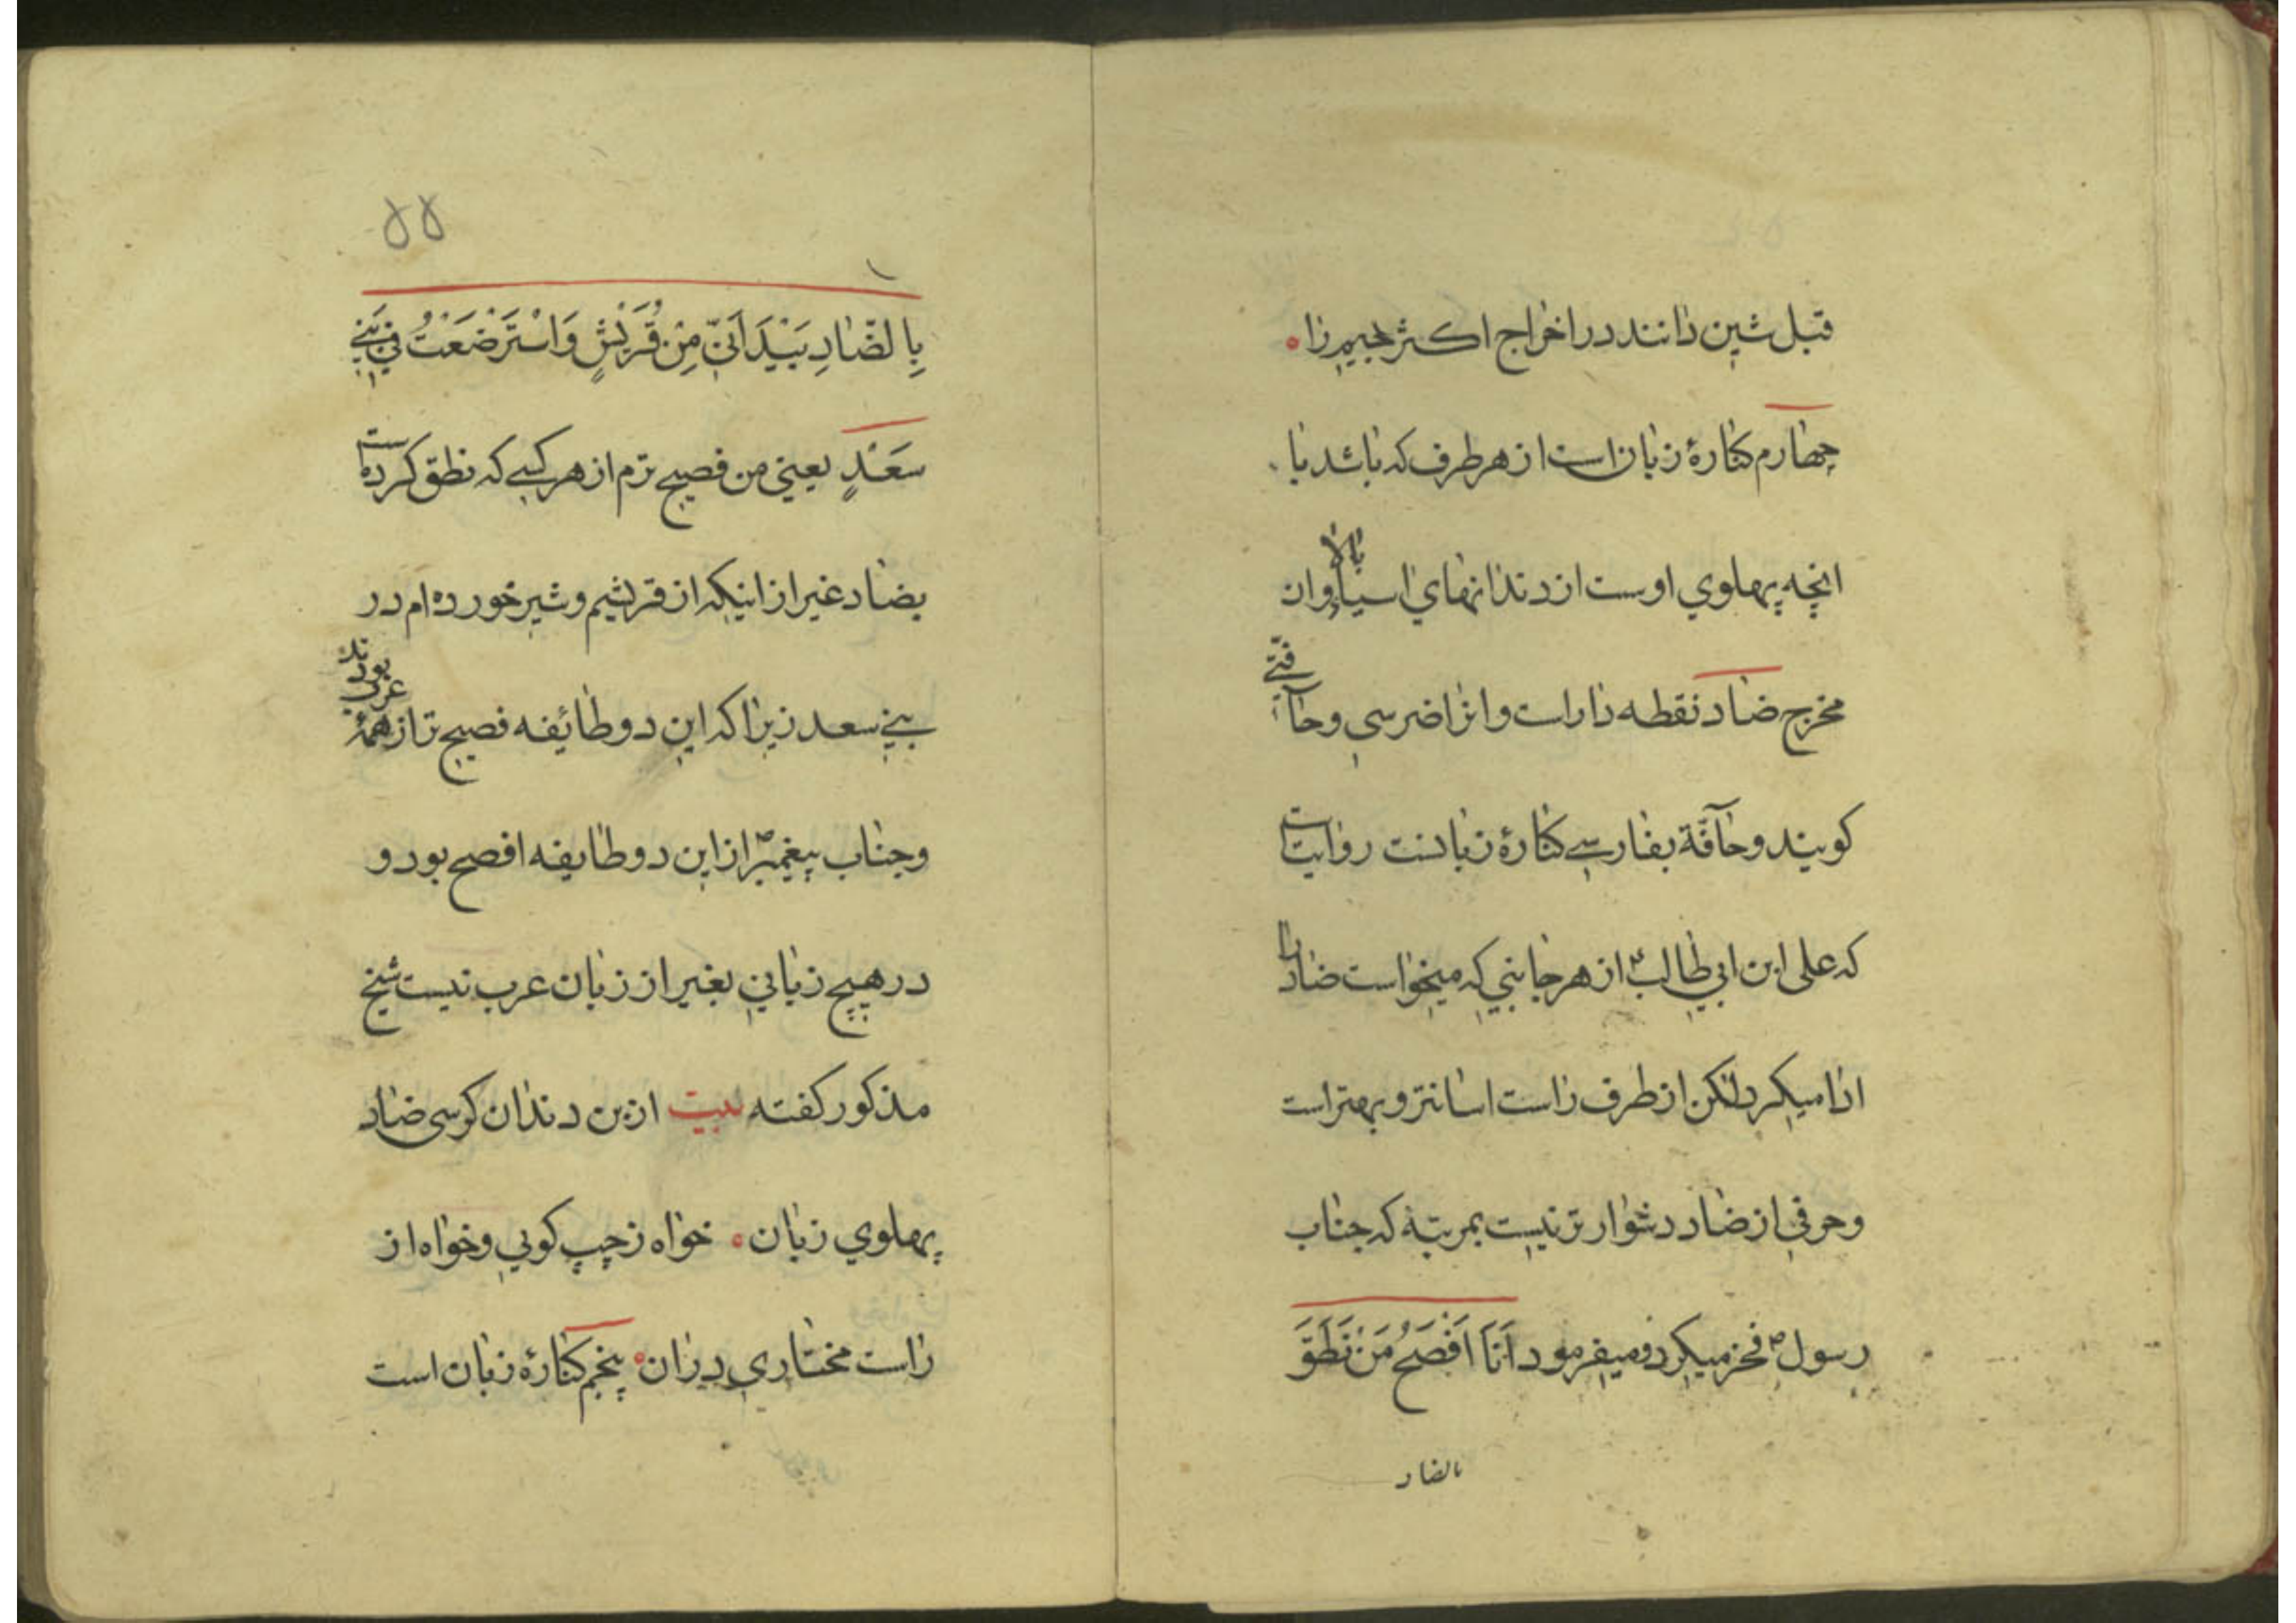 قبل شین دانند در اخراج اکثر جیم را
چهارم کنارهٔ زبان است از هر طرف که باشد با
انچه پهلوي اوست از دندانهاي اسیا بالا وان
مخرج ضاد نقطه دار است وانرا ضرسي وحافّتي
کویند وحافّة بفارسي کنارهٔ زبانست روایتست
که علی ابن ابي طالب از هر جانبي که میخواست ضاد را
ادا میکرد لکن از طرف راست اسانتر و بهتر است
وحرفي از ضاد دشوار تر نیست بمرتبهٔ که جناب
رسول ص فخر میکرد و میفرمود اَنَا اَفْصَحُ مَنْ نَطَقَ
بالضاد
۵۵
۱
بِالضّادِ بَيْدَ اَنّي مِنْ قُرَيْشٍ وَاسْتَرْضَعْتُ في بَني
سَعْدٍ یعني من فصیح ترم از هر کسي که نطق کرده است
بضاد غیر از اینکه از قریشم و شیر خورده ام در
بني سعد زیرا که این دو طائفه فصیح تر از همهٔ عرب بودند
وجناب پیغمبر ص از این دو طایفه افصح بود و
در هیچ زباني بغیر از زبان عرب نیست شیخ
مذکور کفته بیت از بن دندان کرسی ضاد
پهلوي زبان خواه ز چپ کویي وخواه از
راست مختاري در ان پنجم کنارهٔ زبان است